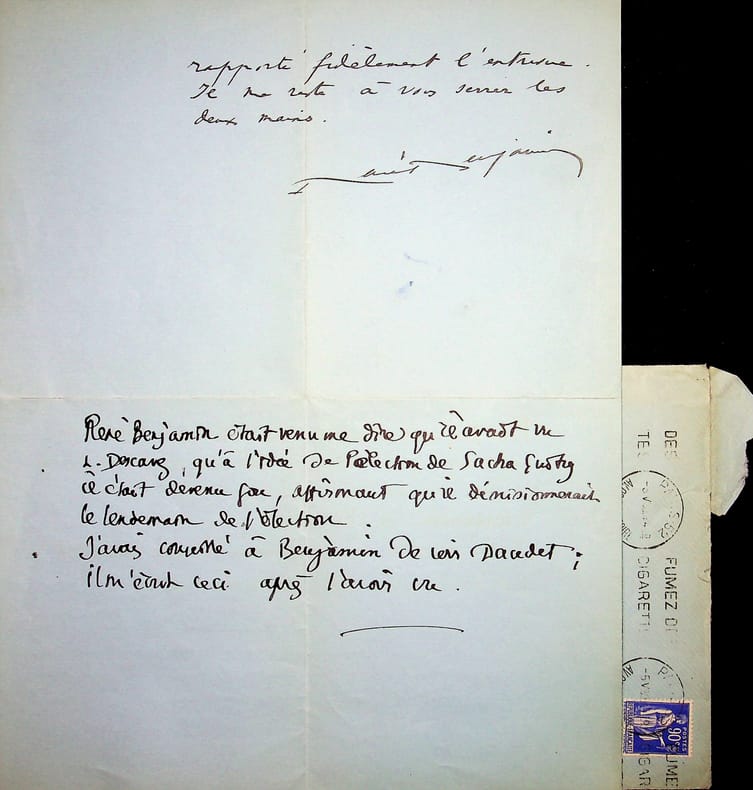 rapporté fidèlement l'entrevue.
Je me reste à vous serrer les
deux mains.
René Benjamin
René Benjamin était venu me dire qu'il avait vu
L. Descaves, qu'à l'idée de l'élection de Sacha Guitry
il était devenu fou, affirmant qu'il démissionnerait
le lendemain de l'élection.
J'avais conseillé à Benjamin de voir Daudet ;
il m'écrit ceci après l'avoir vu.
DES
FUMEZ
CIGARETT
90c
POSTES